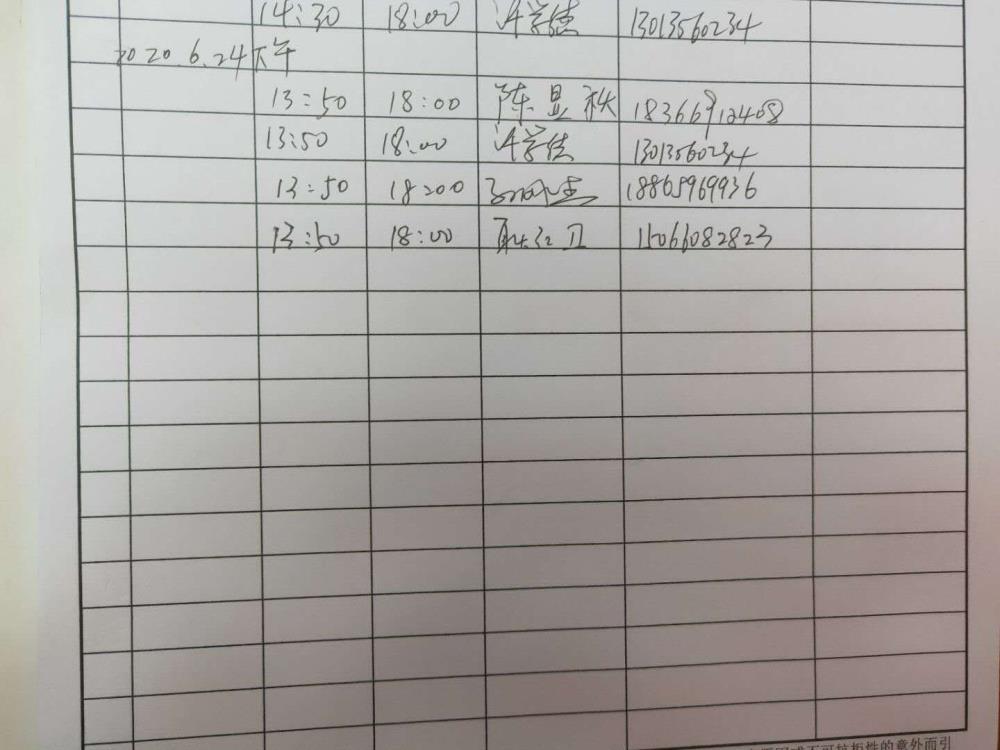 14:30 18:00 许学德 13013560234
2020.6.24下午
13:50 18:00 陈显秋 18366912408
13:50 18:00 许学德 13013560234
13:50 18:00 18865969936
13:50 18:00 15066082823
不可抗拒性的意外而引